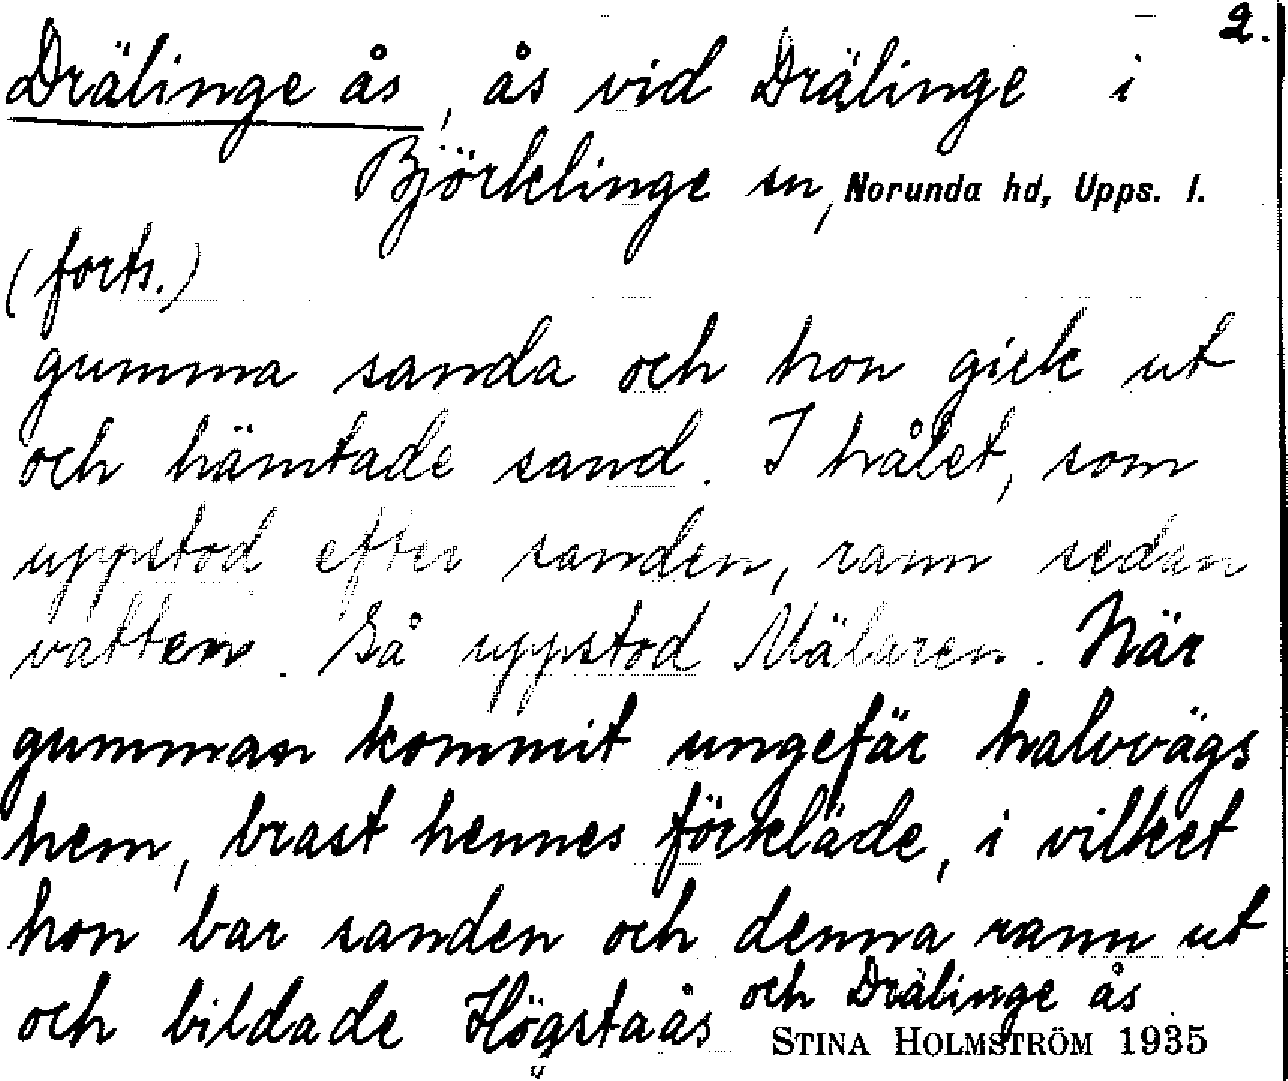 2.
Drälinge ås, ås vid Drälinge i
Björklinge sn, Norunda hd, Upps. l.
(forts.)
gumma sanda och hon gick ut
och hämtade sand. I hålet, som
uppstod efter sanden, rann sedan
vatten. Så uppstod Mälaren. När
gumman kommit ungefär halvvägs
hem, brast hennes förkläde, i vilket
hon bar sanden och denna rann ut
och bildade Högstaås och Drälinge ås.
STINA HOLMSTRÖM 1935